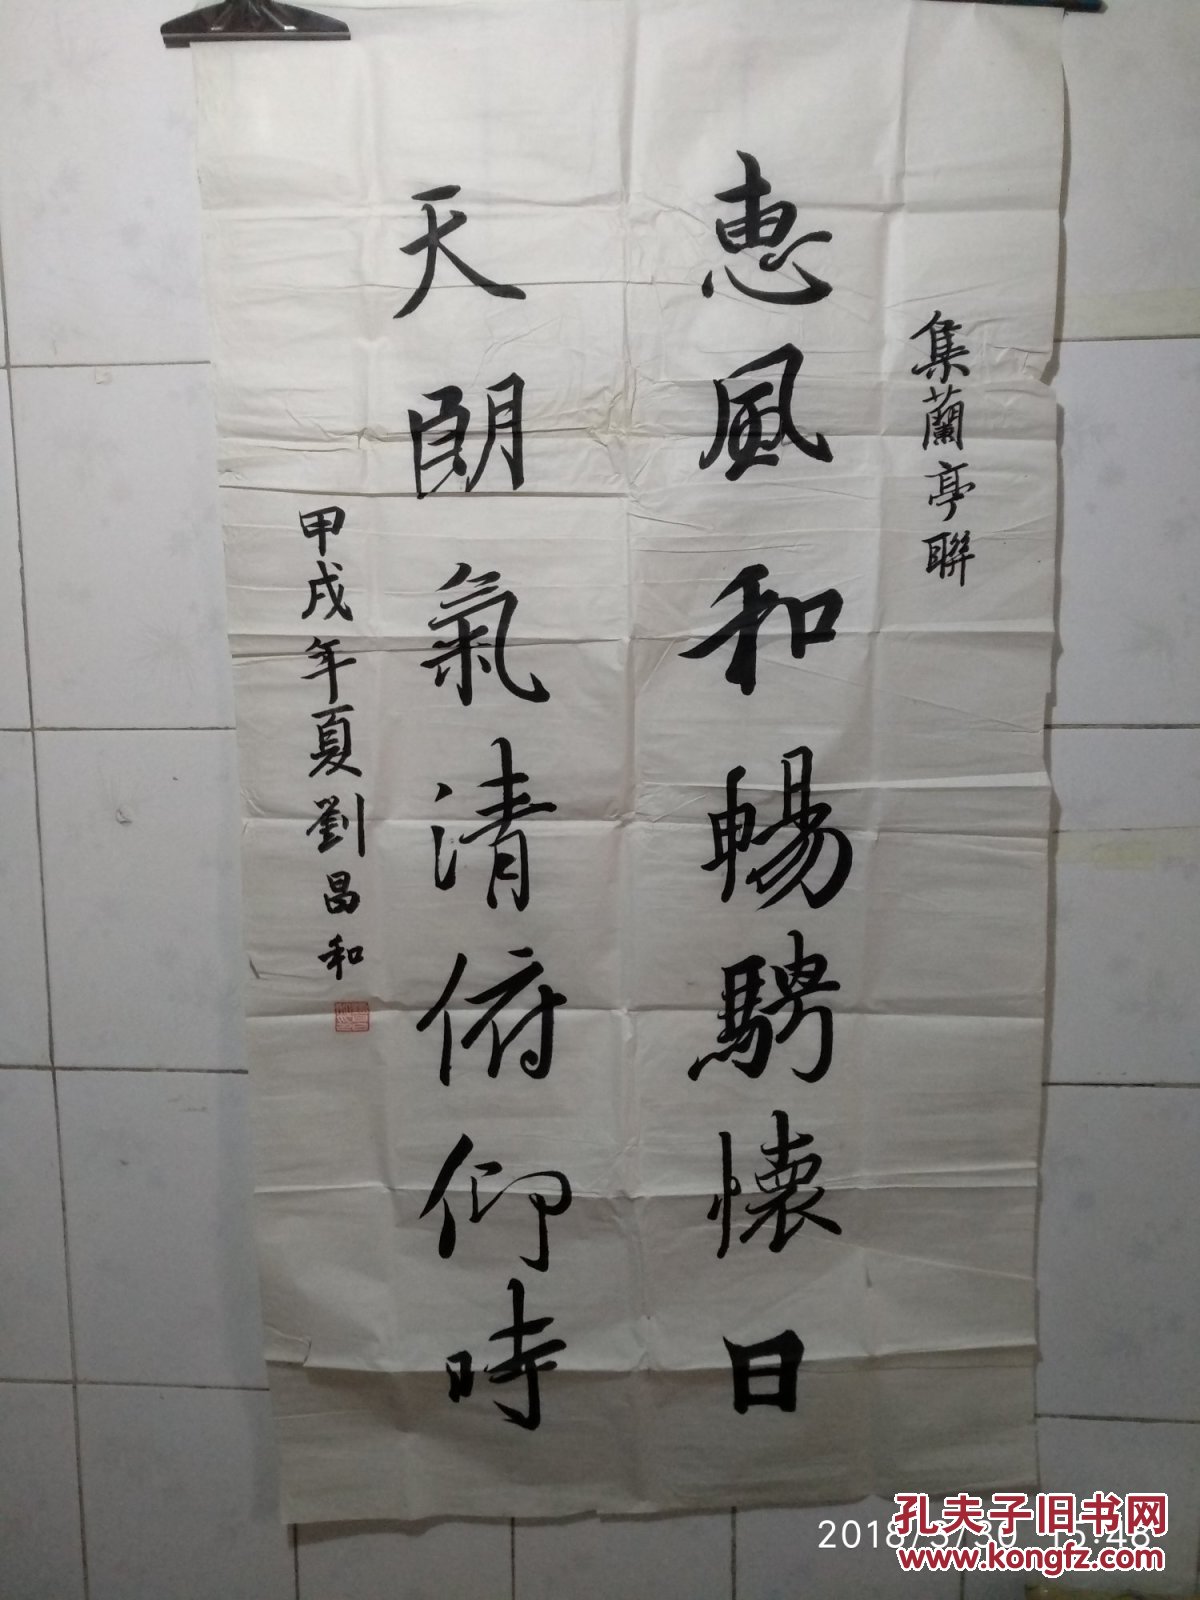 集蘭亭聯
惠風和暢騁懷日
天朗氣清俯仰時
甲戌年夏劉昌和
孔夫子旧书网
2018/3/30 15:48
www.kongfz.com